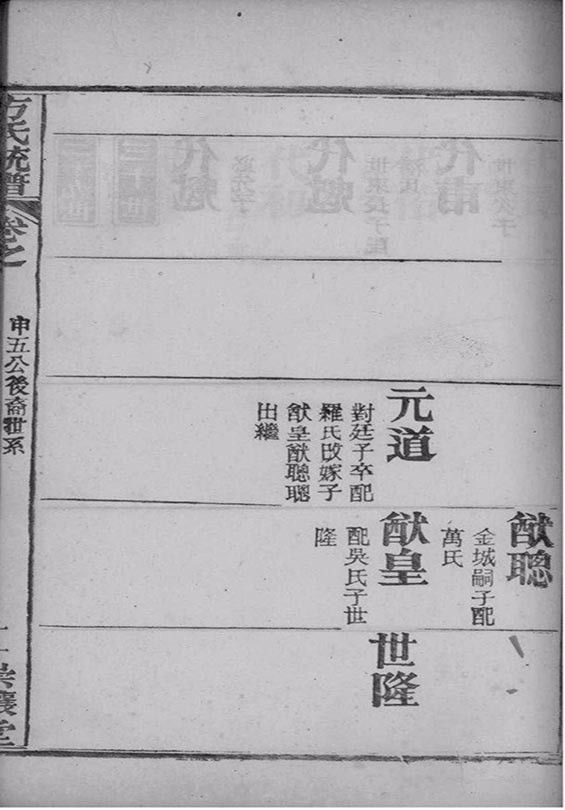 元道
對廷子卒配
羅氏改嫁子
猷皇猷聰聰
出繼
猷聰
金城嗣子配
萬氏
猷皇
配吳氏子世
隆
世隆
方氏統譜
卷之
申五公後裔世系